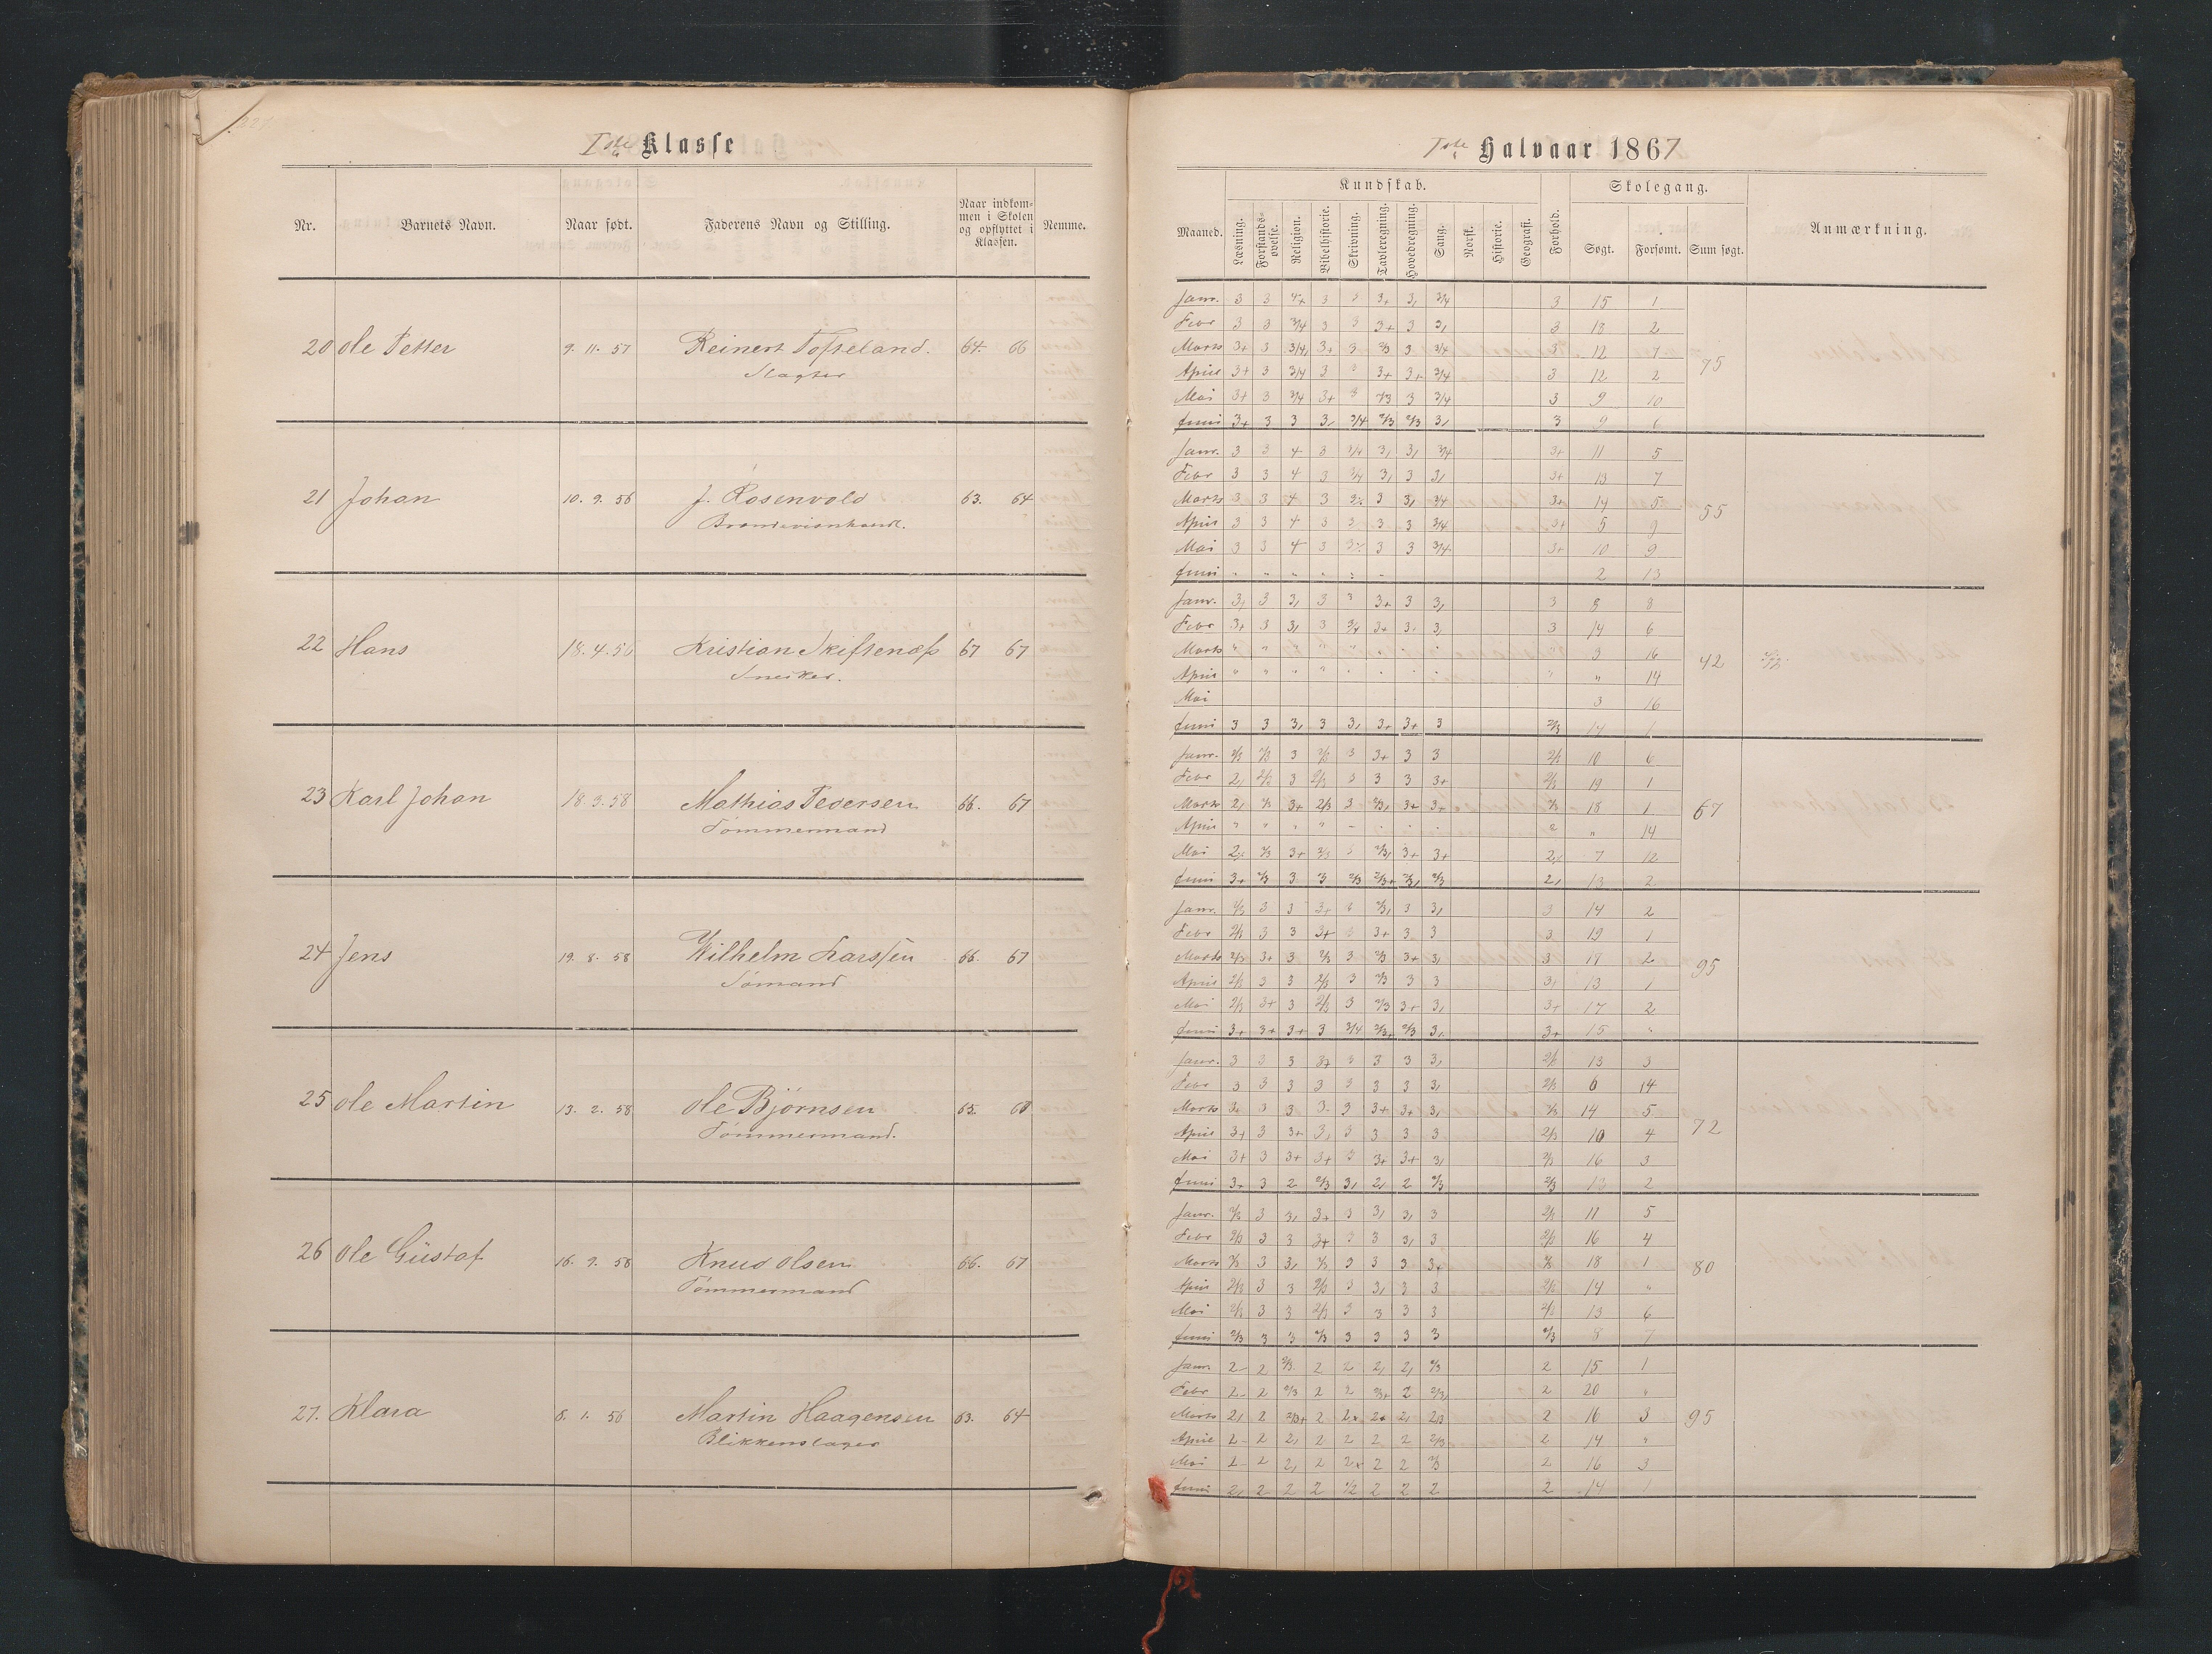 Iste Klasse
Nr. Barnets Navn. Naar født. Faderens Navn og Stilling. Naar indkommen i Skolen og opflyttet i Klassen. Nemme.
20 Ole Petter 9. 11. 57 Reinert Tofteland. 64. 66
Slagter
21 Johan 10. 9. 56 J. Rosenvold 63. 64
22 Hans 18. 4. 56 Kristian Skiftenæss 67 67
Snekker.
23 Karl Johan 18. 3. 58 Mathias Pedersen 66. 67
Tømmermand
24 Jens 19. 8. 58 Wilhelm Larssen 66. 67
Sømand
25 Ole Martin 13. 2. 58 Ole Bjørnsen 65.
Tømmermand.
26 Ole Güstaf 16. 9. 58 Knud Olsen 66. 67
Tømmermand
27. Klara 8. 1. 56 Martin Haagensen 63. 64
Blikkenslager
Iste Halvaar 1867
Kundskab. Skolegang.
Maaned. Læsning. Forstandsøvelse. Religion. Bibelhistorie. Skrivning. Tavleregning. Hovedregning. Sang. Norsk. Historie. Geografi. Forhold. Søgt. Forsømt. Sum søgt. Anmærkning.
Janr. 3 3 4+ 3 3 3+ 3, 3/4 3 15 1
Febr 3 3 3/4 3 3 3+ 3 3, 3 18 2
Marts 3+ 3 3/4, 3+ 3 2/3 3 3/4 3 12 7
April 3+ 3 3/4 3 3 3+ 3+ 3/4 3 12 2
75
Mai 3+ 3 3/4 3+ 3 2/3 3 3/4 3 9 10
Juni 3+ 3 3 3, 3/4 2/3 2/3 3, 3 9 6
Janr. 3 3 4 3 3/4 3, 3, 3/4 3+ 11 5
Febr 3 3 4 3 3/4 3, 3 3, 3+ 13 7
Marts 3 3 4 3 3 3, 3/4 3+ 14 5
April 3 3 4 3 3 3 3 3/4 3+ 5 9
55
Mai 3 3 4 3 3 3 3/4 3+ 10 9
Juni " " " " " " 2 13
Janr. 3, 3 3, 3 3 3+ 3 3, 3 8 8
Febr 3+ 3 3, 3 3/4 3+ 3 3, 3 14 6
Marts " " " " " " " " " 3 16
42
April " " " " " " " " " " 14
Mai 3 16
Juni 3 3 3, 3 3, 3+ 3+ 3 2/3 14 1
Janr. 2/3 2/3 3 2/3 3 3+ 3 3 2/3 10 6
Febr 2, 2/3 3 2/3 3 3 3 3+ 2/3 19 1
Marts 2, 2/3 3+ 2/3 3 2/3, 3+ 3+ 2/3 18 1
67
April " " " " " " " " 2 " 14
Mai 2/3 3+ 2/3 3 2/3, 3+ 3+ 7 12
Juni 3+ 2/3 3 3 2/3 2/3+ 2/3, 2/3 2, 13 2
Janr. 2/3 3 3 3+ 3 2/3, 3 3, 3 14 2
Febr 2/3 3 3 3+ 3 3+ 3 3 3 19 1
Marts 2/3 3+ 3 2/3 3 2/3 3+ 3, 3 17 2
95
April 2/3 3 3 2/3 3 2/3 3 3 3+ 13 1
Mai 2/3 3+ 3 2/3 3 2/3 3+ 3, 3+ 17 2
Juni 3+ 3+ 3+ 3 3/4 2/3+ 2/3 3, 3+ 15 "
Janr. 3 3 3 3+ 3 3 3 3, 2/3 13 3
Febr 3 3 3 3 3 3 3 3, 2/3 6 14
Marts 3 3 3 3 3 3+ 3+ 3, 2/3 14 5
72
April 3+ 3 3+ 3, 3 3 3 3 2/3 10 4
Mai 3+ 3 3+ 3+ 3 3+ 3+ 3, 2/3 16 3
Juni 3+ 3 2 2/3 3, 2, 2 2/3 2/3 13 2
Janr. 2/3 3 3, 3+ 3 3, 3, 3 2/3 11 5
Febr 2/3 3 3 3+ 3 3 3, 3 2/3 16 4
Marts 2/3 3 3, 2/3 3 3 3 3+ 2/3 18 1
80
April 2/3 3 3 2/3 3 3, 3 3 2/3 14 "
Mai 2/3 3 3 2/3 3 3 3 3 2/3 13 6
Juni 2/3 3 3 2/3 3 3 3 3 2/3 8 7
Janr. 2 2 2/3 2 2 2, 2, 2/3 2 15 1
Febr 2 2 2/3 2 2 2/3+ 2 2/3, 2 20 "
Marts 2, 2 2/3+ 2 2+ 2+ 2, 2/3 2 16 3
95
April 2 2 2, 2 2 2 2 2/3 2 14 "
Mai 2 2 2, 2 2+ 2 2 2/3 2 16 3
Juni 2, 2 2 2 1/2 2 2 2 2 14 1